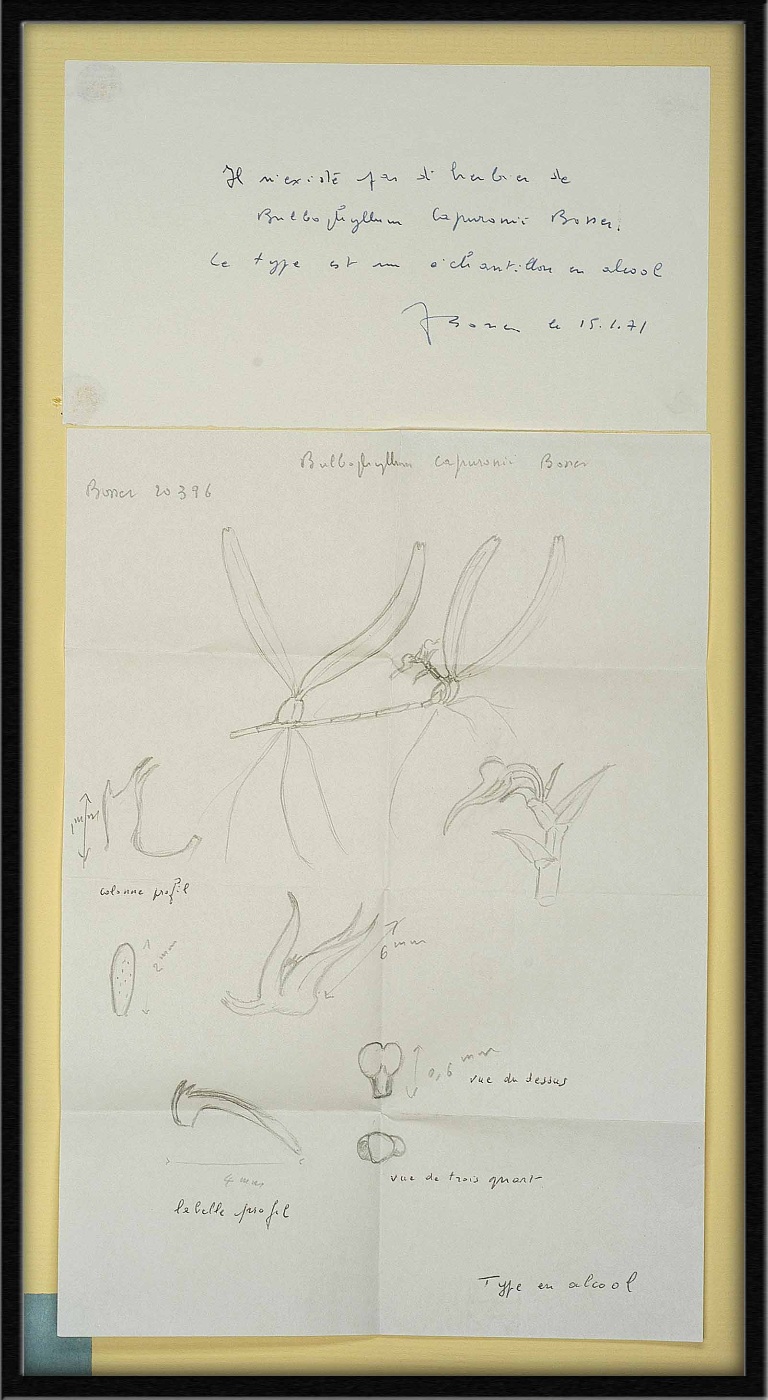 Il n'existe pas d'herbier de
Bulbophyllum Capuronii Bosser.
Le type est un échantillon en alcool
JBosser le 15.1.71
Bulbophyllum capuronii Bosser
Bosser 20396
1 mm
colonne profil
2 mm
6 mm
0,6 mm
vue du dessus
4 mm
vue de trois quart
labelle profil
Type en alcool